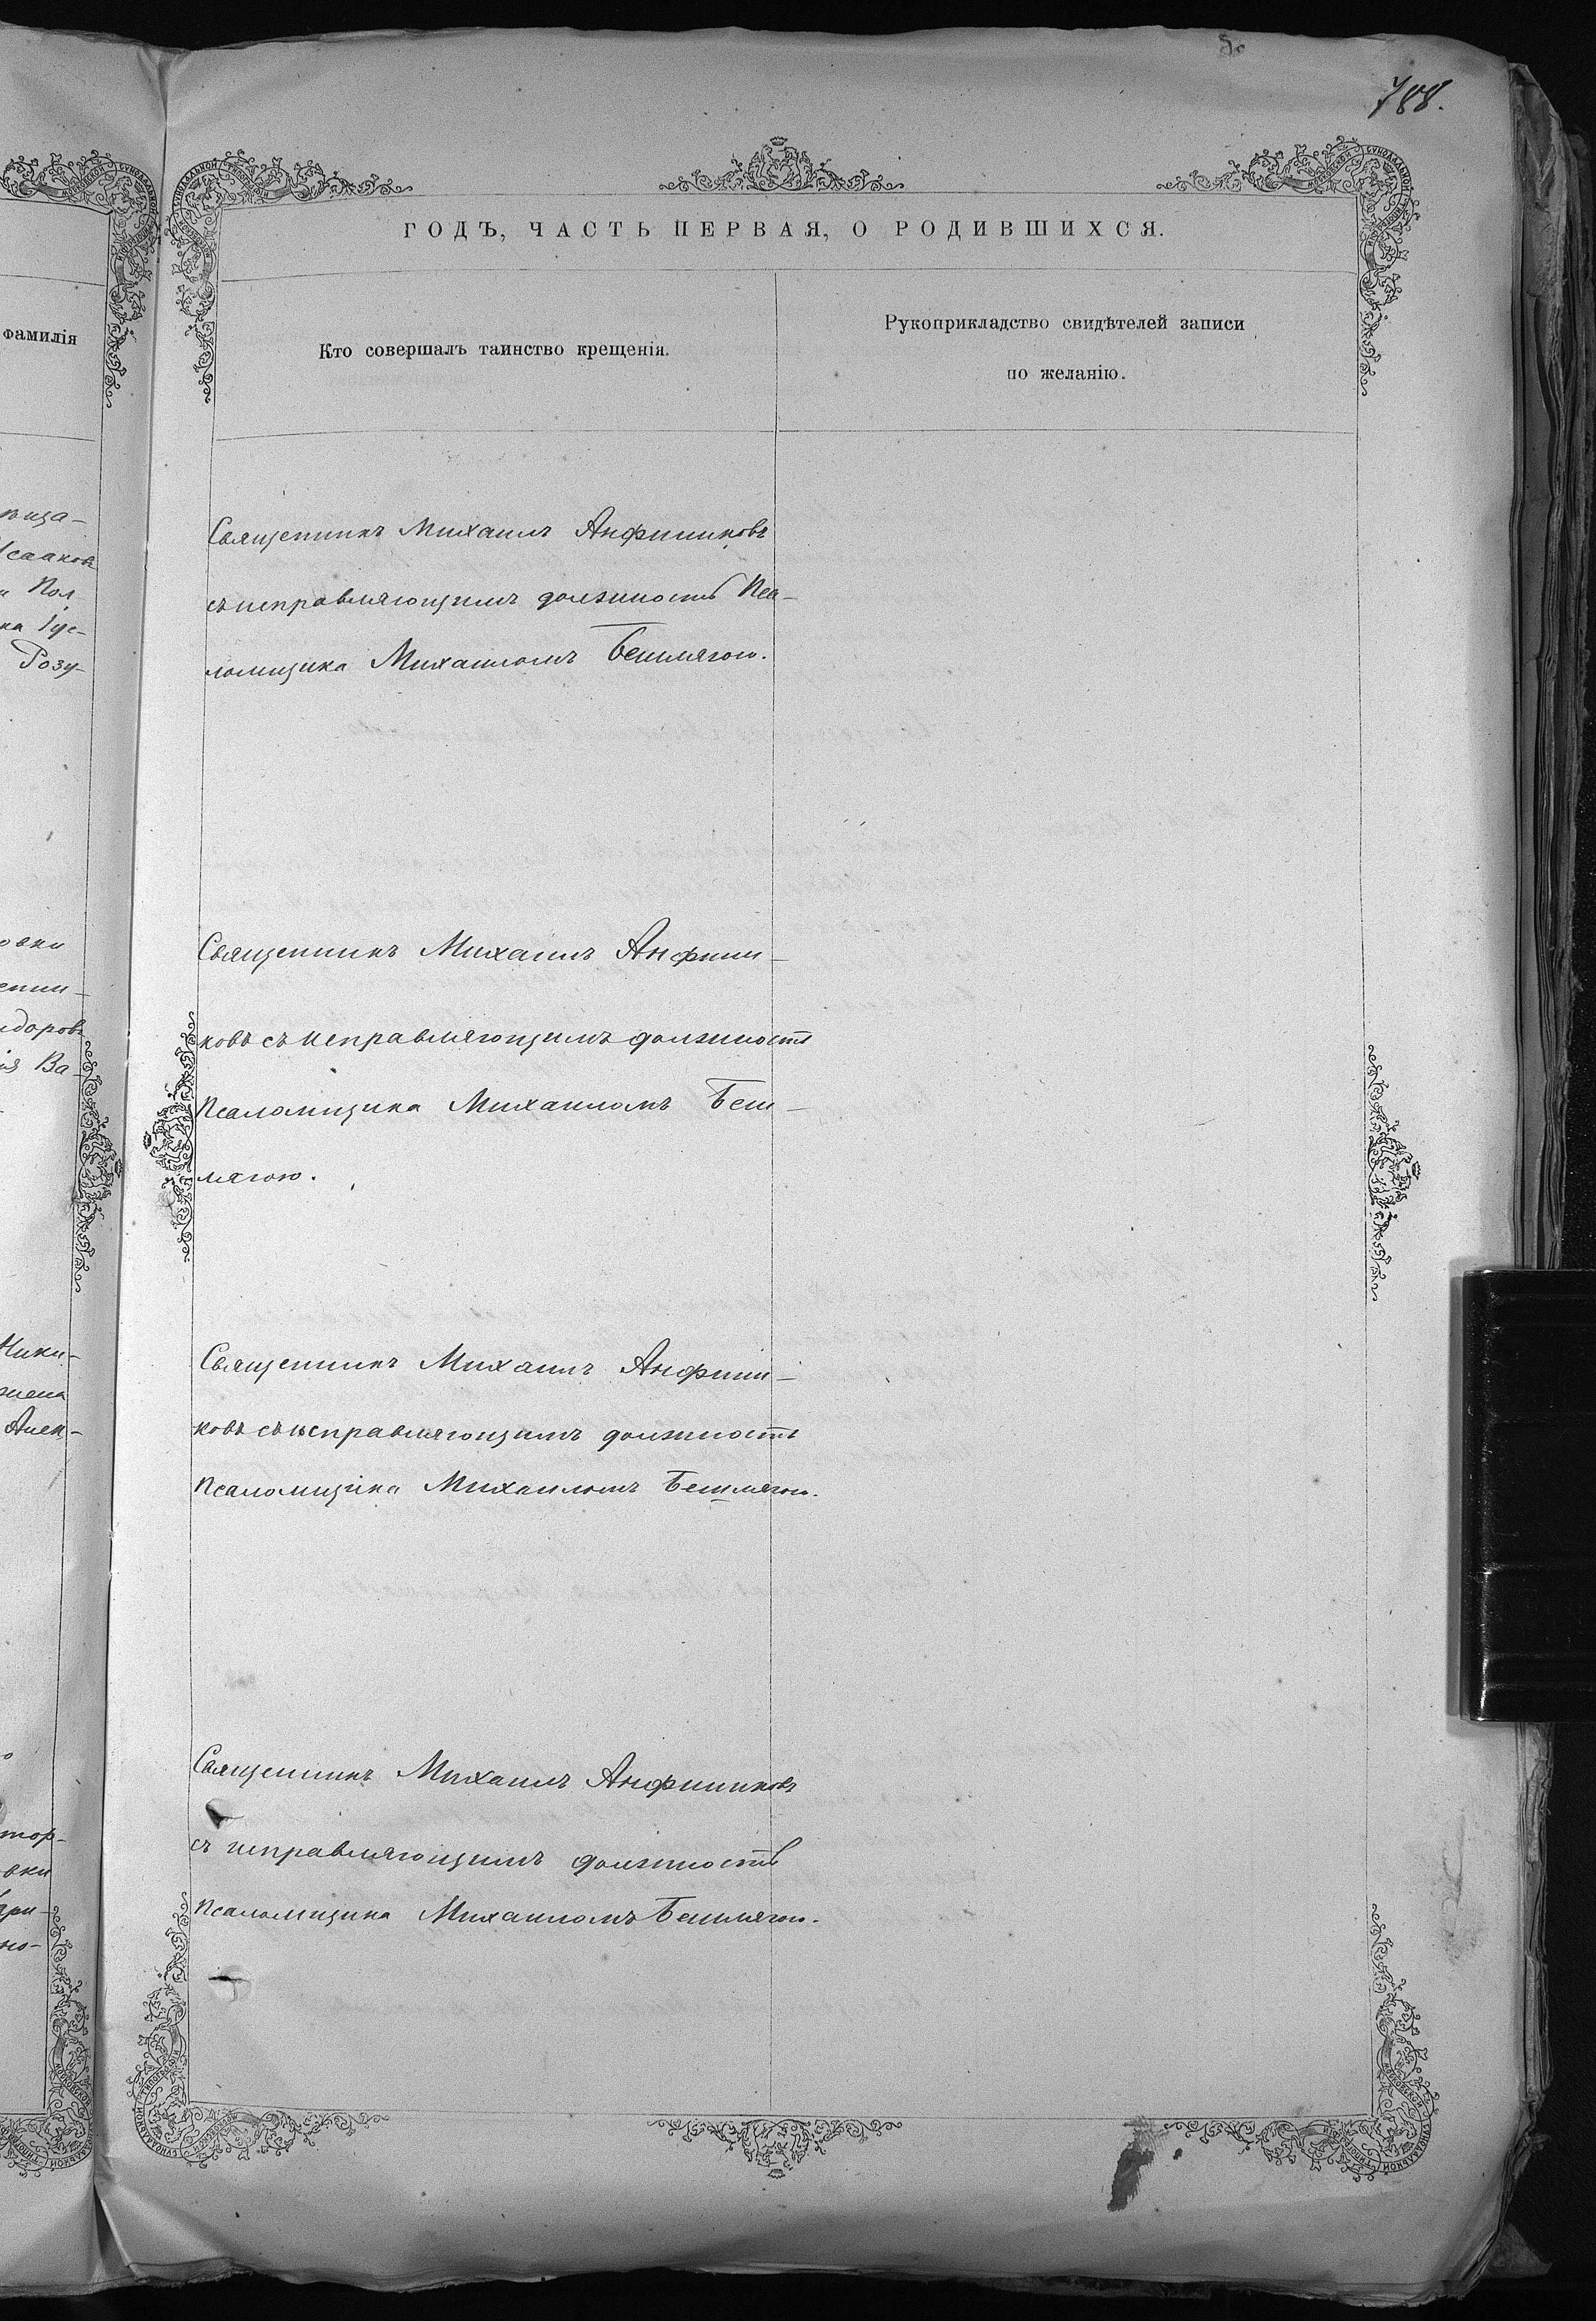 788.
ГОДЪ, ЧАСТЬ ПЕРВАЯ, О РОДИВШИХСЯ.
фамилія
Кто совершалъ таинство крещенія.
Рукоприкладство свидѣтелей записи
по желанію.
Священникъ Михаилъ Анфиниковъ
съ исправляющимъ должность Пса-
ломщика Михаиломъ Бешлягою.
Исааков
Пол
Розу-
Священникъ Михаилъ Анфини-
ковъ съ исправляющимъ должность
Псаломщика Михаиломъ Беш-
лягою.
овки
идоров
ія Ва-
Священникъ Михаилъ Анфини-
ковъ съ исправляющимъ должность
Псаломщика Михаиломъ Бешлягою.
Ники-
Алек-
Священникъ Михаилъ Анфиниковъ
съ исправляющимъ должность
Псаломщика Михаиломъ Бешлягою.